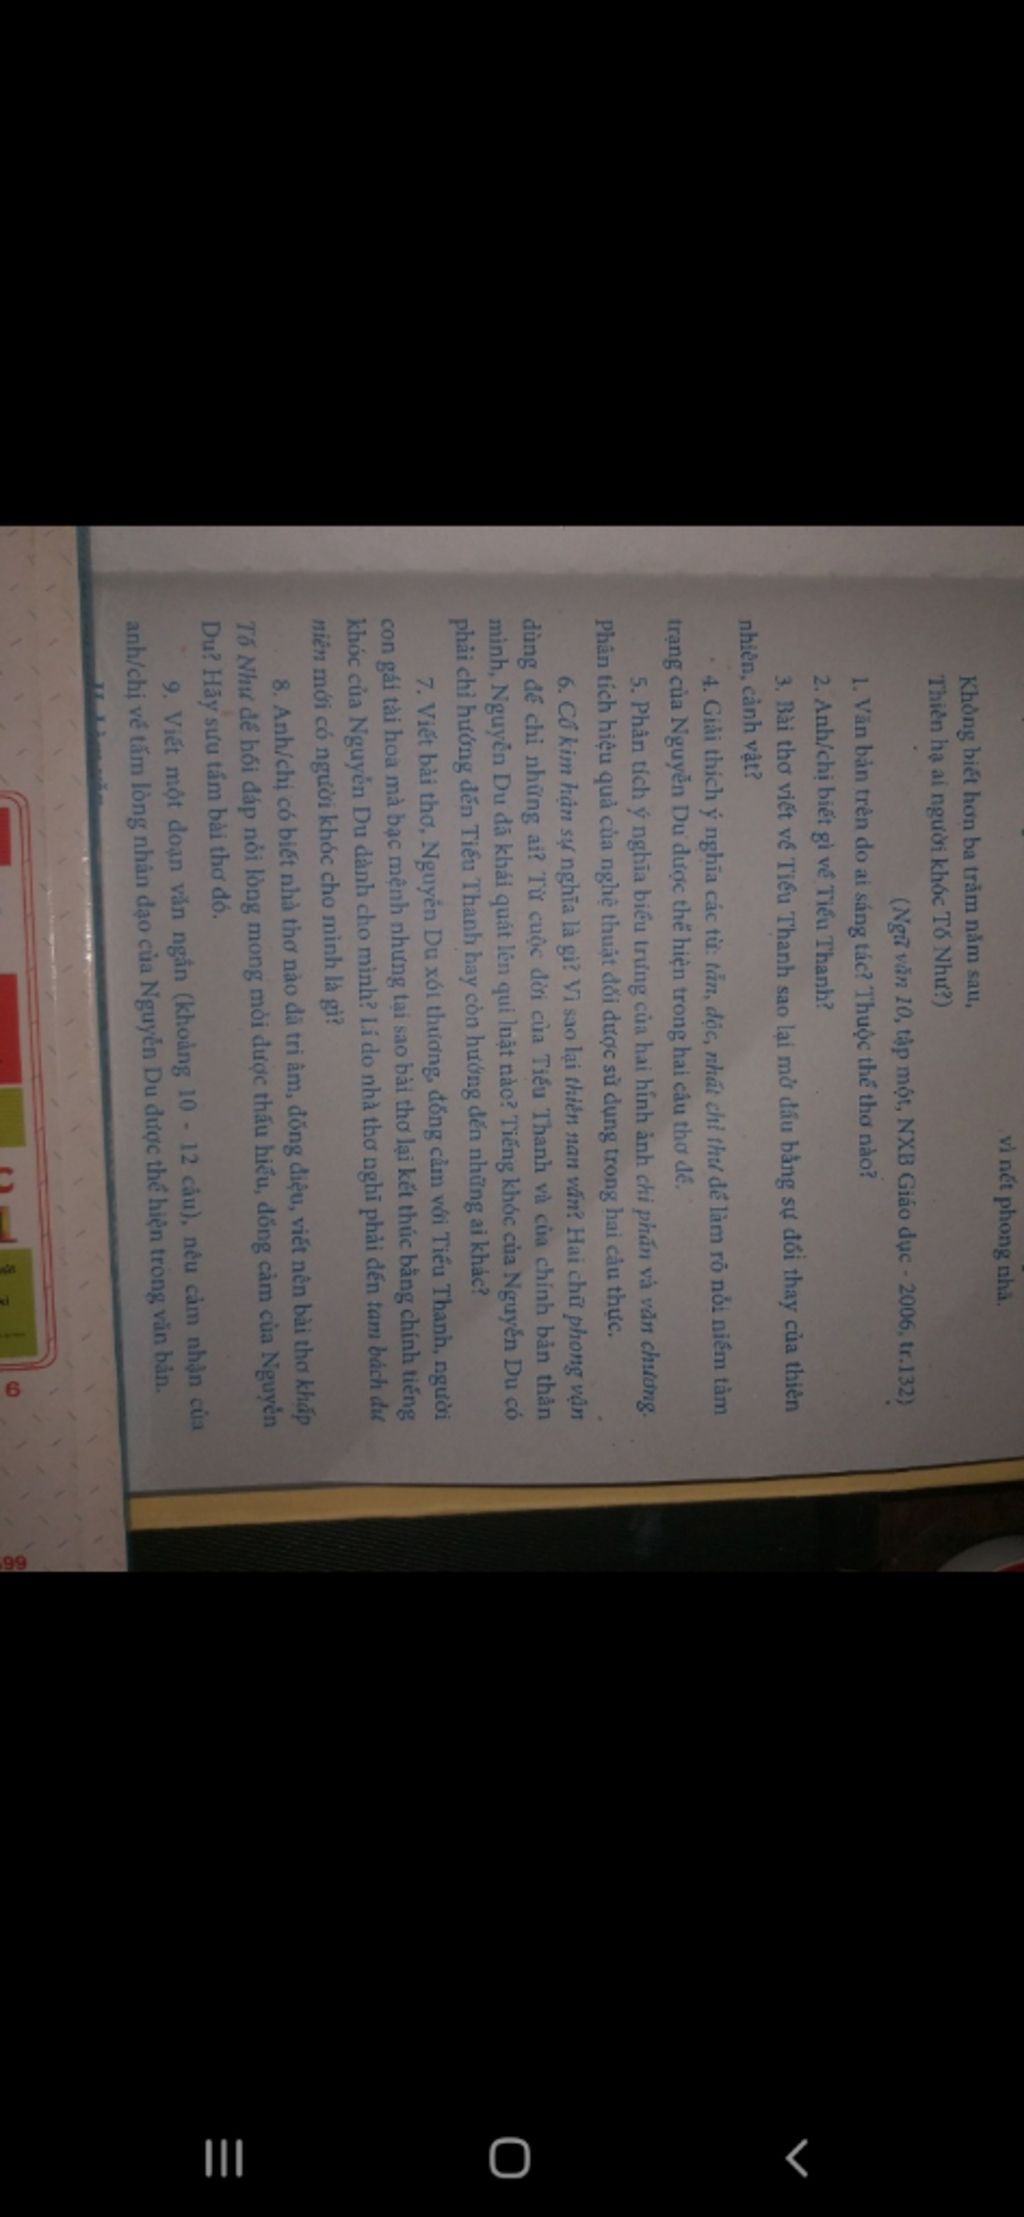 vì nết phong nhã.
Không biết hơn ba trăm năm sau,
Thiên hạ ai người khóc Tố Như?)
(Ngữ văn 10, tập một, NXB Giáo dục - 2006, tr.132)
1. Văn bản trên do ai sáng tác? Thuộc thể thơ nào?
2. Anh/chị biết gì về Tiểu Thanh?
3. Bài thơ viết về Tiểu Thanh sao lại mở đầu bằng sự đổi thay của thiên
nhiên, cảnh vật?
4. Giải thích ý nghĩa các từ: tẫn, độc, nhất chỉ thư để làm rõ nỗi niềm tâm
trạng của Nguyễn Du được thể hiện trong hai câu thơ đề.
5. Phân tích ý nghĩa biểu trưng của hai hình ảnh chi phấn và văn chương.
Phân tích hiệu quả của nghệ thuật đối được sử dụng trong hai câu thực.
6. Cổ kim hận sự nghĩa là gì? Vì sao lại thiên nan vấn? Hai chữ phong vận
dùng để chỉ những ai? Từ cuộc đời của Tiểu Thanh và của chính bản thân
mình, Nguyễn Du đã khái quát lên qui luật nào? Tiếng khóc của Nguyễn Du có
phải chỉ hướng đến Tiểu Thanh hay còn hướng đến những ai khác?
7. Viết bài thơ, Nguyễn Du xót thương, đồng cảm với Tiểu Thanh, người
con gái tài hoa mà bạc mệnh nhưng tại sao bài thơ lại kết thúc bằng chính tiếng
khóc của Nguyễn Du dành cho mình? Lí do nhà thơ nghĩ phải đến tam bách dư
niên mới có người khóc cho mình là gì?
8. Anh/chị có biết nhà thơ nào đã tri âm, đồng điệu, viết nên bài thơ khấp
Tố Như để hồi đáp nỗi lòng mong mỏi được thấu hiểu, đồng cảm của Nguyễn
Du? Hãy sưu tầm bài thơ đó.
9. Viết một đoạn văn ngắn (khoảng 10 - 12 câu), nêu cảm nhận của
anh/chị về tấm lòng nhân đạo của Nguyễn Du được thể hiện trong văn bản.